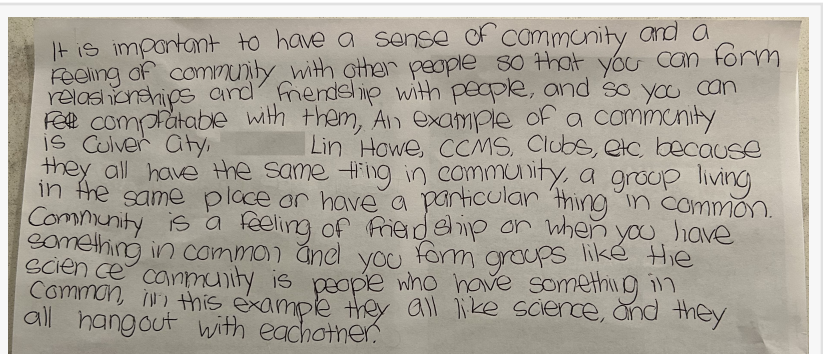 It is important to have a sense of community and a
feeling of community with other people so that you can form
relashionships and friendship with people, and so you can
feel compfatable with them, An example of a community
is Culver City, Lin Howe, CCMS, Clubs, etc, because
they all have the same thing in community, a group living
in the same place or have a particular thing in common.
Community is a feeling of friendship or when you have
something in common and you form groups like the
science community is people who have something in
Common, in this example they all like science, and they
all hangout with eachother.